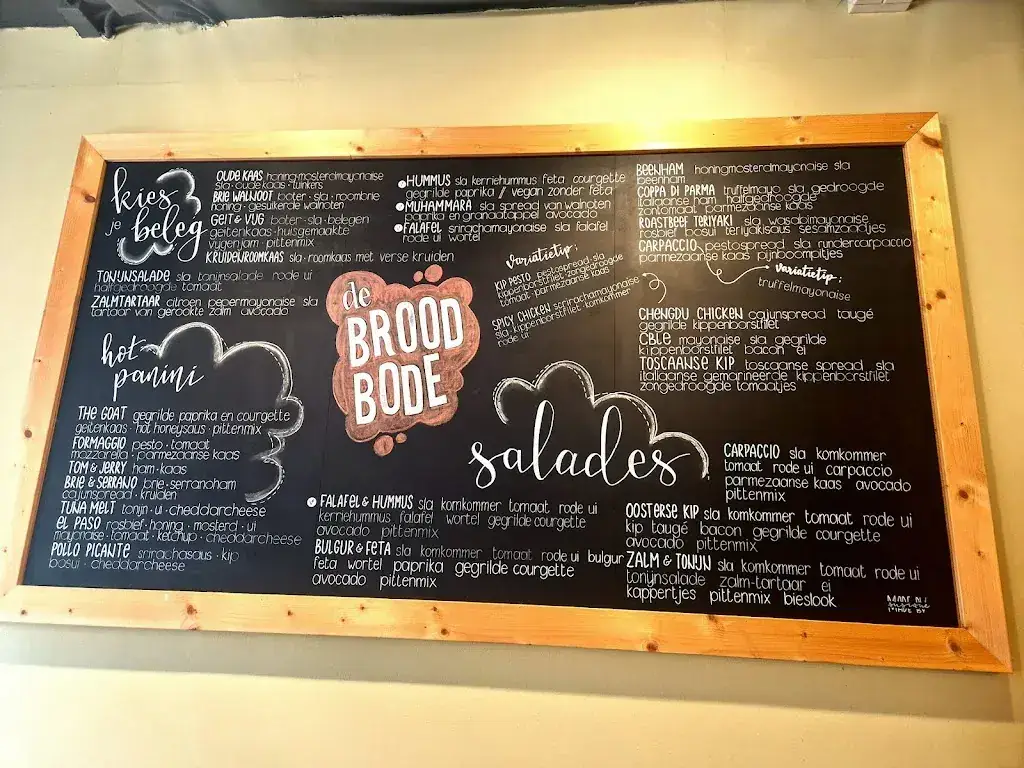 kies
je beleg
OUDE KAAS honing-mosterdmayonaise
sla · oude kaas · tuinkers
BRIE WALNOOT boter · sla · roombrie
honing · gesuikerde walnoten
GEIT & VIJG boter · sla · belegen
geitenkaas · huisgemaakte
vijgenjam · pittenmix
KRUIDENROOMKAAS sla · roomkaas met verse kruiden
TONIJNSALADE sla tonijnsalade rode ui
halfgedroogde tomaat
ZALMTARTAAR citroen pepermayonaise sla
tartaar van gerookte zalm avocado
HUMMUS sla kerriehummus feta courgette
gegrilde paprika / vegan zonder feta
MUHAMMARA sla spread van walnoten
paprika en granaatappel avocado
FALAFEL srirachamayonaise sla falafel
rode ui wortel
variatietip:
KIP PESTO pestospread sla
kippenborstfilet zongedroogde
tomaat parmezaanse kaas
SPICY CHICKEN srirachamayonaise
sla kippenborstfilet komkommer
rode ui
BEENHAM honingmosterdmayonaise sla
beenham
COPPA DI PARMA truffelmayo sla gedroogde
italiaanse ham halfgedroogde
zontomaat parmezaanse kaas
ROASTBEEF TERIYAKI sla wasabimayonaise
rosbief bosui teriyakisaus sesamzaadjes
CARPACCIO pestospread sla rundercarpaccio
parmezaanse kaas pijnboompitjes
variatietip:
truffelmayonaise
CHENGDU CHICKEN cajunspread taugé
gegrilde kippenborstfilet
CBLE mayonaise sla gegrilde
kippenborstfilet bacon ei
TOSCAANSE KIP toscaanse spread sla
italiaanse gemarineerde kippenborstfilet
zongedroogde tomaatjes
de
BROOD
BODE
hot
panini
THE GOAT gegrilde paprika en courgette
geitenkaas · hot honeysaus · pittenmix
FORMAGGIO pesto · tomaat
mozzarella · parmezaanse kaas
TOM & JERRY ham · kaas
BRIE & SERRANO brie · serranoham
cajunspread · kruiden
TUNA MELT tonijn · ui · cheddarcheese
EL PASO rosbief · honing · mosterd · ui
mayonaise · tomaat · ketchup · cheddarcheese
POLLO PICANTE srirachasaus · kip
bosui · cheddarcheese
salades
FALAFEL & HUMMUS sla komkommer tomaat rode ui
kerriehummus falafel wortel gegrilde courgette
avocado pittenmix
BULGUR & FETA sla komkommer tomaat rode ui bulgur
feta wortel paprika gegrilde courgette
avocado pittenmix
CARPACCIO sla komkommer
tomaat rode ui carpaccio
parmezaanse kaas avocado
pittenmix
OOSTERSE KIP sla komkommer tomaat rode ui
kip taugé bacon gegrilde courgette
avocado pittenmix
ZALM & TONIJN sla komkommer tomaat rode ui
tonijnsalade zalm-tartaar ei
kappertjes pittenmix bieslook